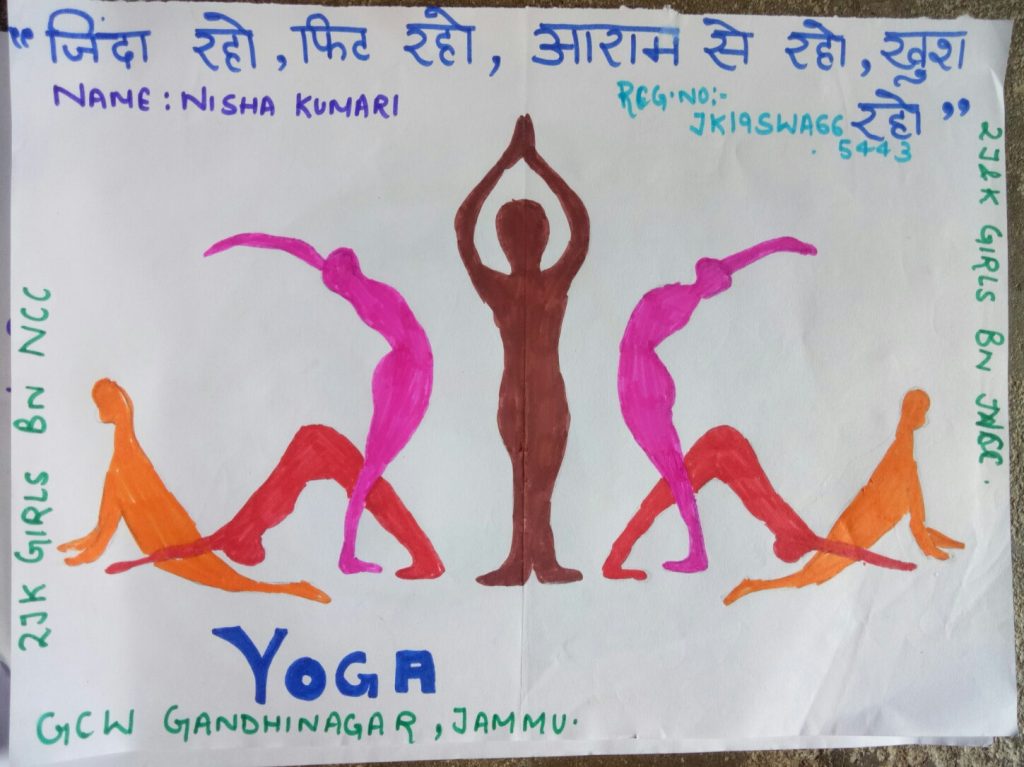 "जिंदा रहो, फिट रहो, आराम से रहो, खुश
रहो"
NAME: NISHA KUMARI
REG.NO:-
JK19SWA66
5443
2JK GIRLS BN NCC
2J&K GIRLS BN NCC.
YOGA
GCW GANDHINAGAR, JAMMU.